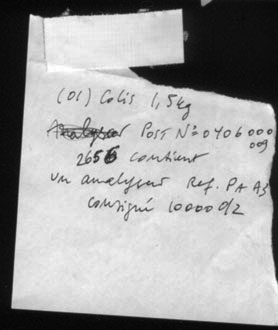 (01) Colis 1,5kg
Analyseur POST N° 0406000
009
2656 contient
un analyseur Ref. PA AS
consigné 10000 d2